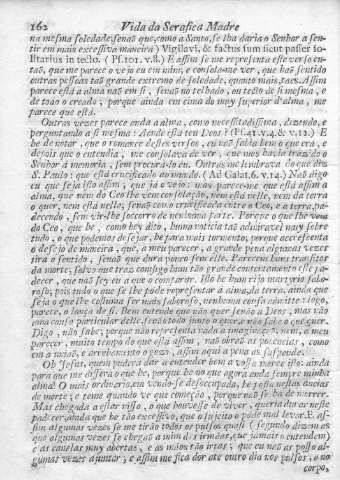 162 Vida da Serafica Madre
na mesma soledade, senaõ que, como a Santo, se lha daria o Senhor a sen-
tir em mais excessiva maneira) Vigilavi, & factus sum sicut passer so-
litarius in tecto. (Ps. 101. v. 8.) E assim se me representa este verso en-
taõ, que me parece o vejo eu em mim, e consola-me ver, que haõ sentido
outras pessoas taõ grande extremo de soledade, quanto mais taes. Assim
parece está a alma naõ em si, senaõ no telhado, ou tecto de si mesma, e
de todo o creado; porque ainda em cima do muy superior d'alma, me
parece que está.
Outras vezes parece anda a alma, como necessitadissima, dizendo, e
perguntando a si mesma: Aonde está teu Deos? (Ps. 41. v. 4. & v. 12.) E
he de notar, que o romance destes versos, eu naõ sabia bem o que era, e
depois que o entendia, me consolava de ver, que mos havia trazido o
Senhor á memoria, sem procuralo eu. Outras me lembrava do que diz
S. Paulo: que está crucificado ao mundo. (Ad Galat. 6. v. 14.) Naõ digo
eu que seja isto assim, que já o vejo: mas parece-me que está assim a
alma, que nem do Ceo lhe vem consolaçaõ, nem está nelle, nem da terra
o quer, nem está nella, senaõ como crucificada entre o Ceo, e a terra, pa-
decendo, sem vir-lhe soccorro de nenhuma parte. Porque o que lhe vem
do Ceo, que he, como hey dito, huma noticia taõ admiravel muy sobre
tudo, o que podemos desejar, he para mais tormento, porque accrescenta
o desejo de maneira, que, a meu parecer, a grande pena algumas vezes
tira o sentido, senaõ que dura pouco sem elle. Parecem huns transitos
da morte, salvo que traz comsigo hum taõ grande contentamento este pa-
decer, que naõ sey eu a que o comparar. Elle he hum rijo martyrio sabo-
roso; pois tudo o que se lhe póde representar a alma, da terra, ainda que
seja o que lhe costuma ser mais saboroso, nenhuma consa admitte; logo,
parece, o lança de si. Bem entende que naõ quer senaõ a Deos, mas naõ
ama consa particular delle, senaõ todo junto o quer, e naõ sabe o que quer.
Digo, naõ sabe; porque naõ representa nada a imaginaçaõ, nem, a meu
parecer, muito tempo do que está assim, naõ obraõ as potencias, como
em a uniaõ, e arrebamento o gozo, assim aqui a pena as suspende.
Oh Jesus, quem pudera dar a entender bem a vossa mercê isto: ainda
para que me dissera o que he, porque he no que agora anda sempre minha
alma! O mais ordinario, em vendo-se desoccupada, he posta nestas ancias
de morte, e teme quando ve que começaõ, porque naõ se ha de morrer.
Mas chegada a estar nisso, o que houvesse de viver, queria durar neste
padecer, ainda que he taõ excessivo, que o sujeito o póde mal levar. E as-
sim algumas vezes se me tiraõ todos os pulsos quasi (segundo dizem as
que algumas vezes se chegaõ a mim das irmãas, que já mais o entendem)
e as canelas muy abertas, e as mãos taõ irtas; que eu naõ as posso al-
gumas vezes ajuntar; e assim me fica dor até outro dia nos pulsos, e no
corpo,